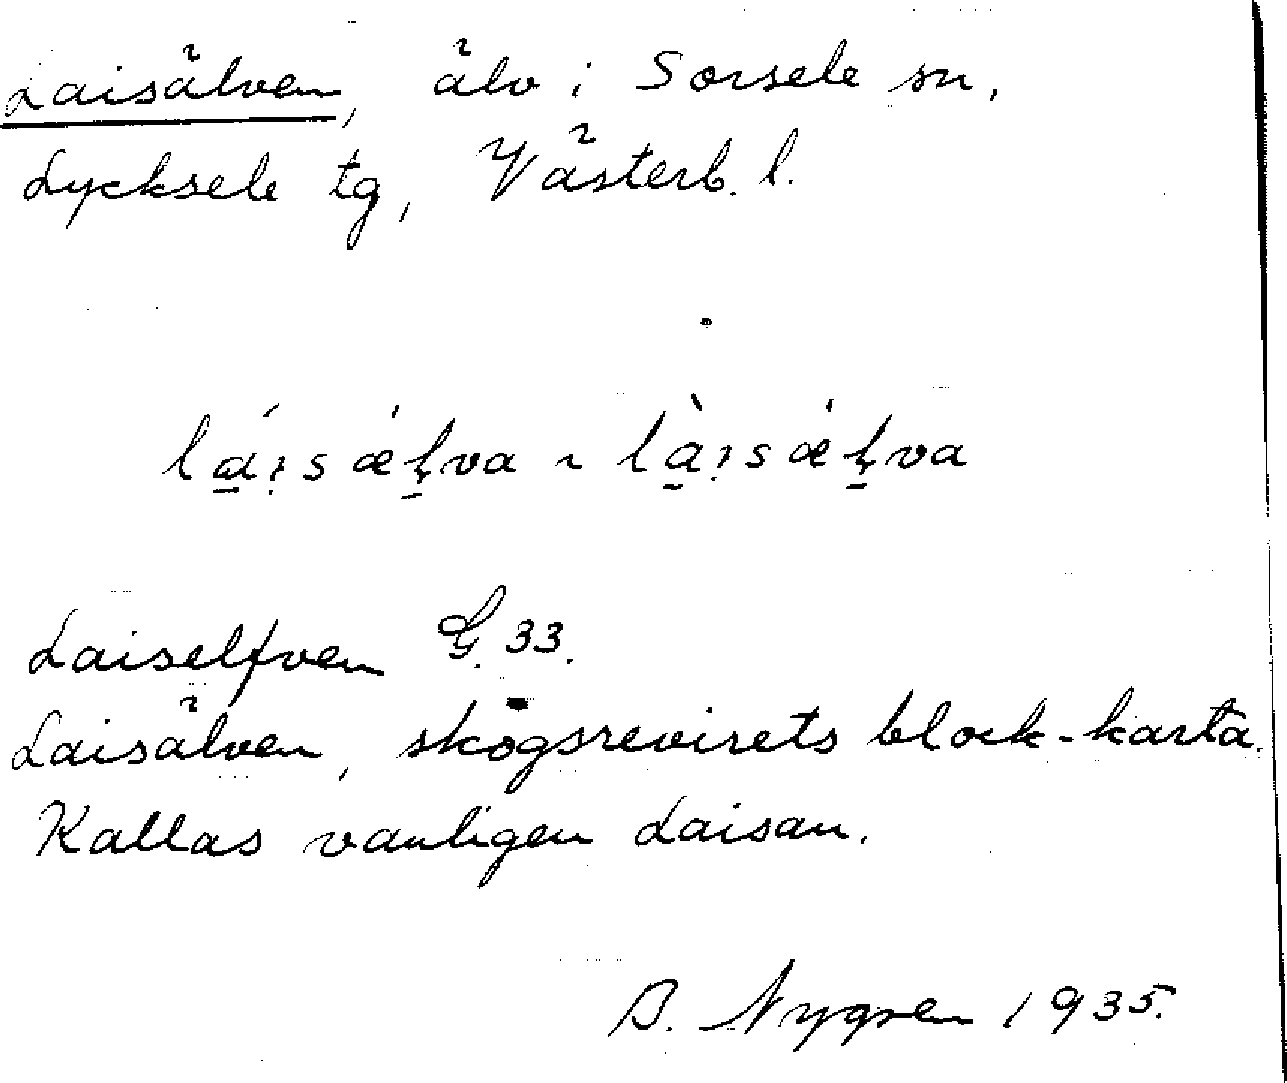 Laisälven, älv i Sorsele sn,
Lycksele tg, Västerb. l.
lá̱ısǽḻva ~ là̱ısǽḻva
Laiselfven G. 33.
Laisälven, skogsrevirets block-karta.
Kallas vanligen Laisan.
B. Nygren 1935.